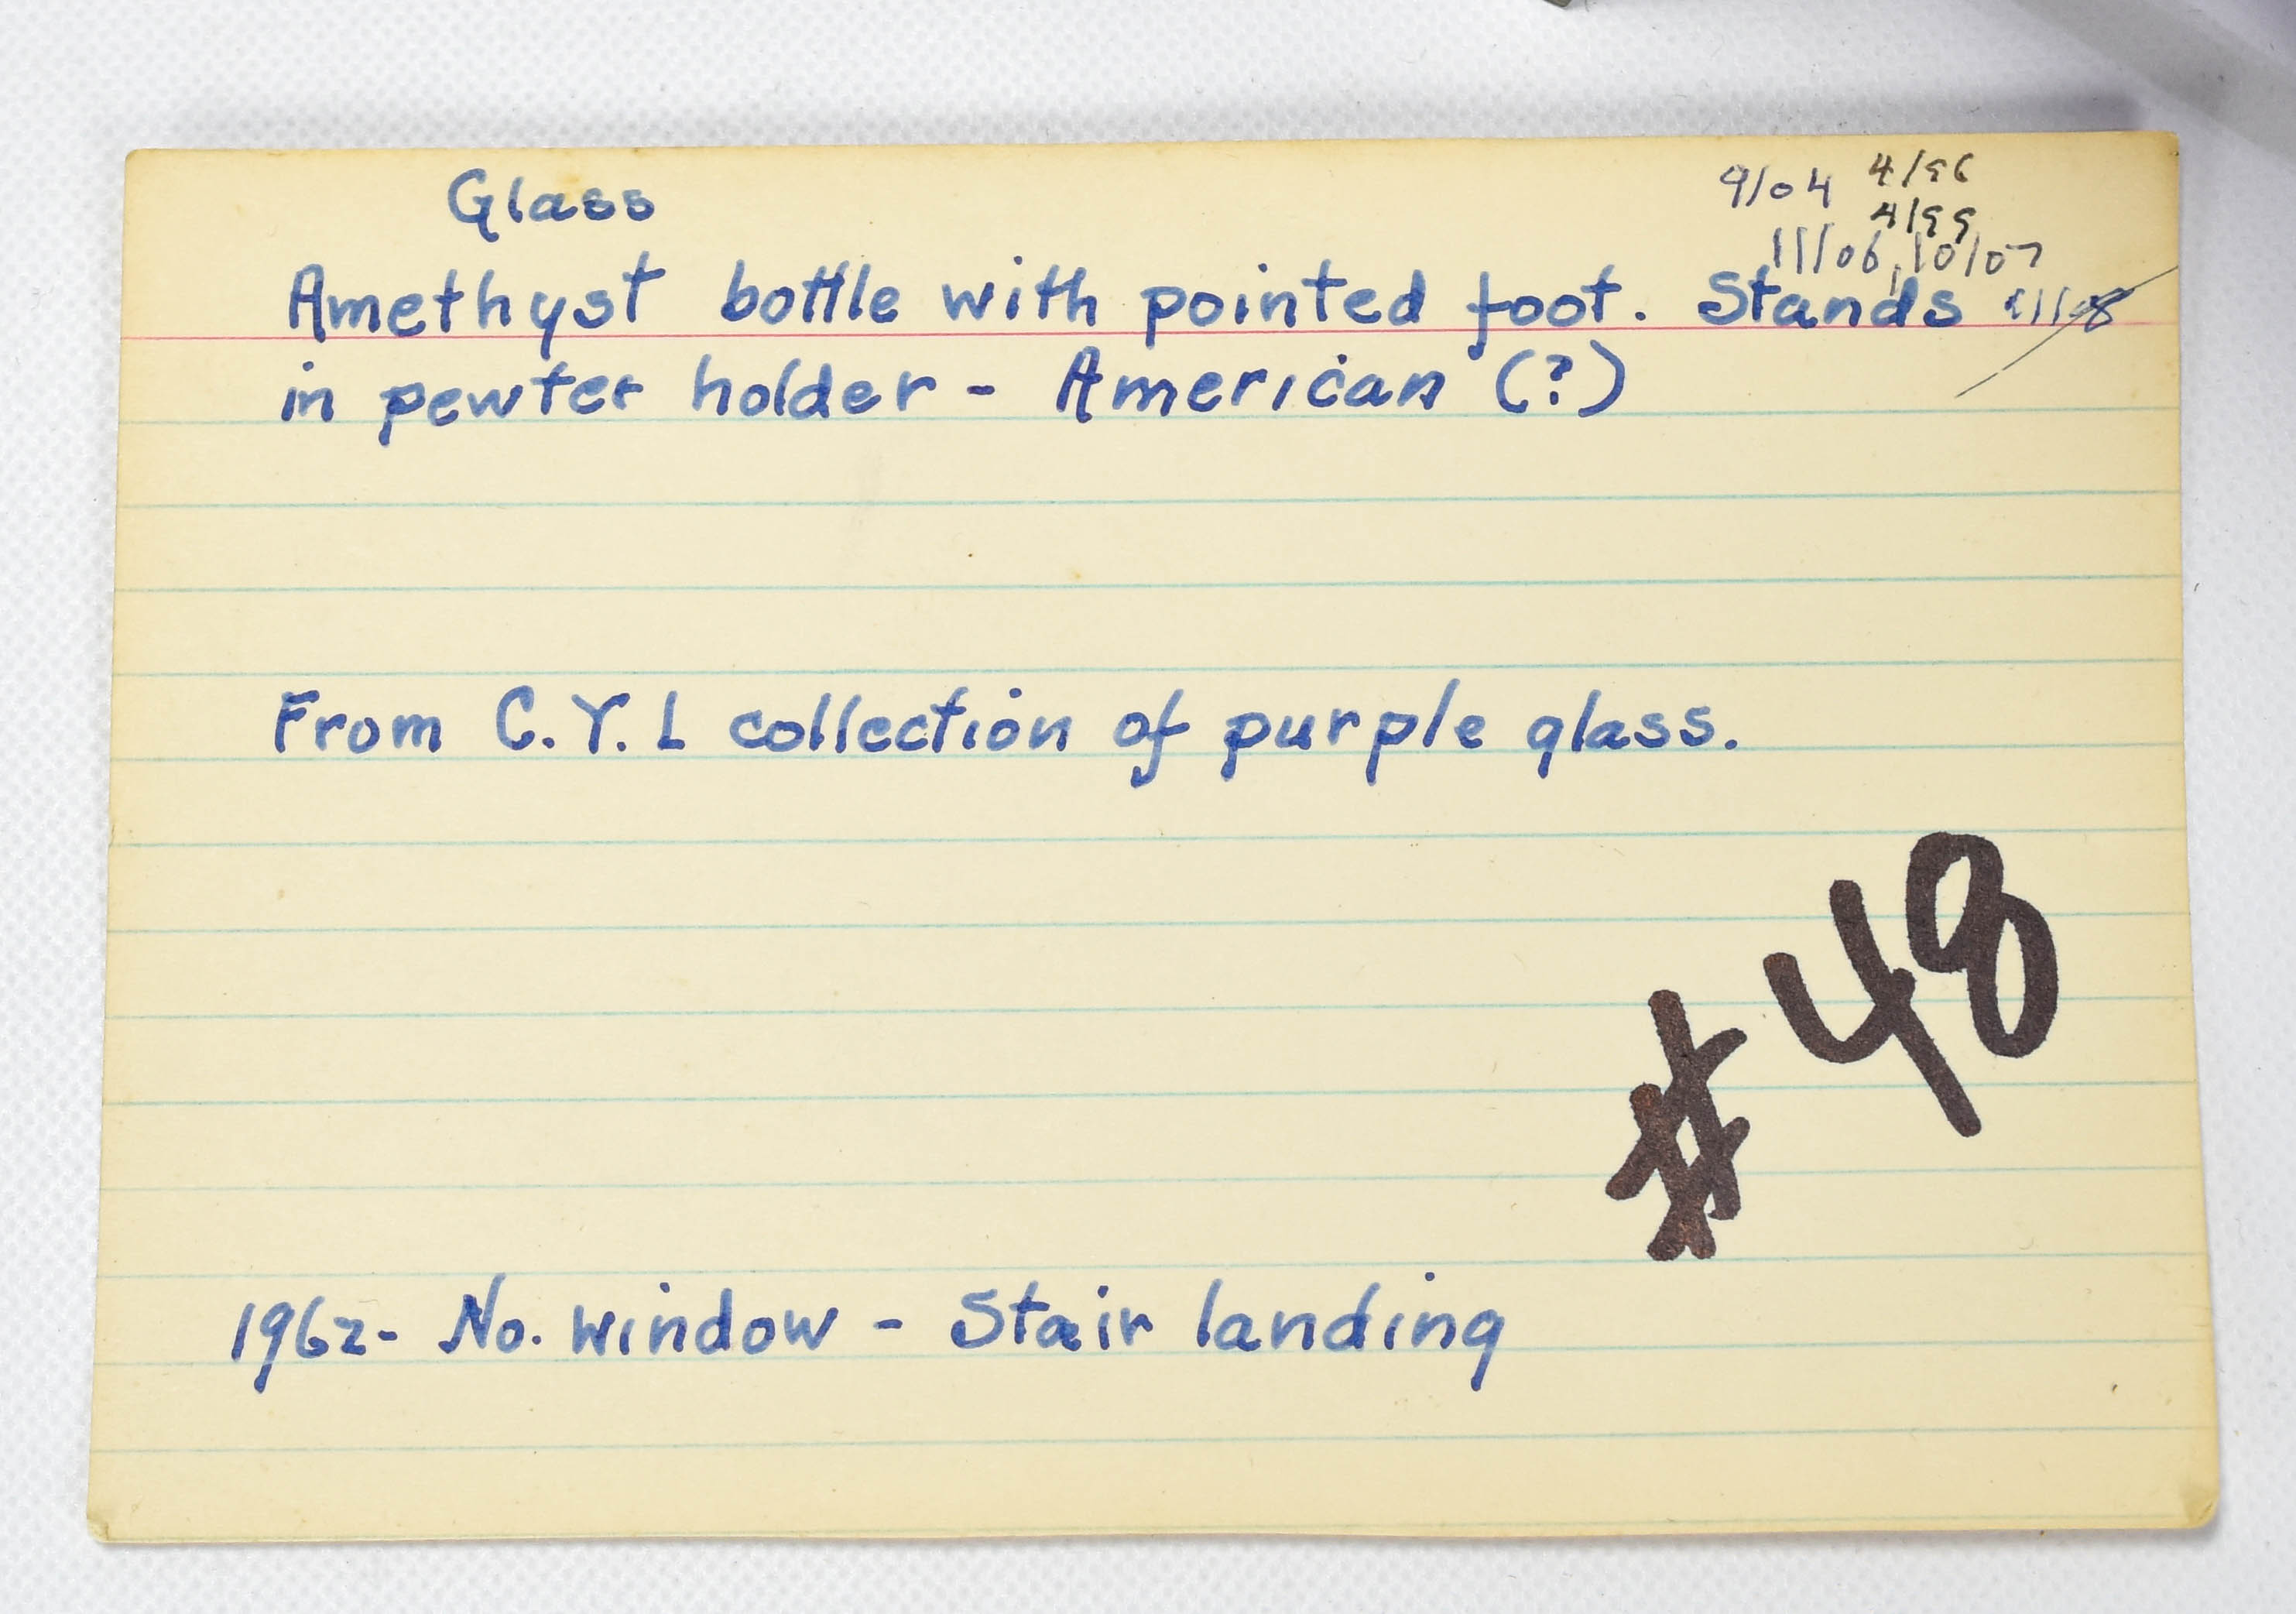 Glass
9/04 4/96
4/99
11/06, 10/07
Amethyst bottle with pointed foot. Stands
in pewter holder - American (?)
From C.Y.L collection of purple glass.
#48
1962- No. window - Stair landing